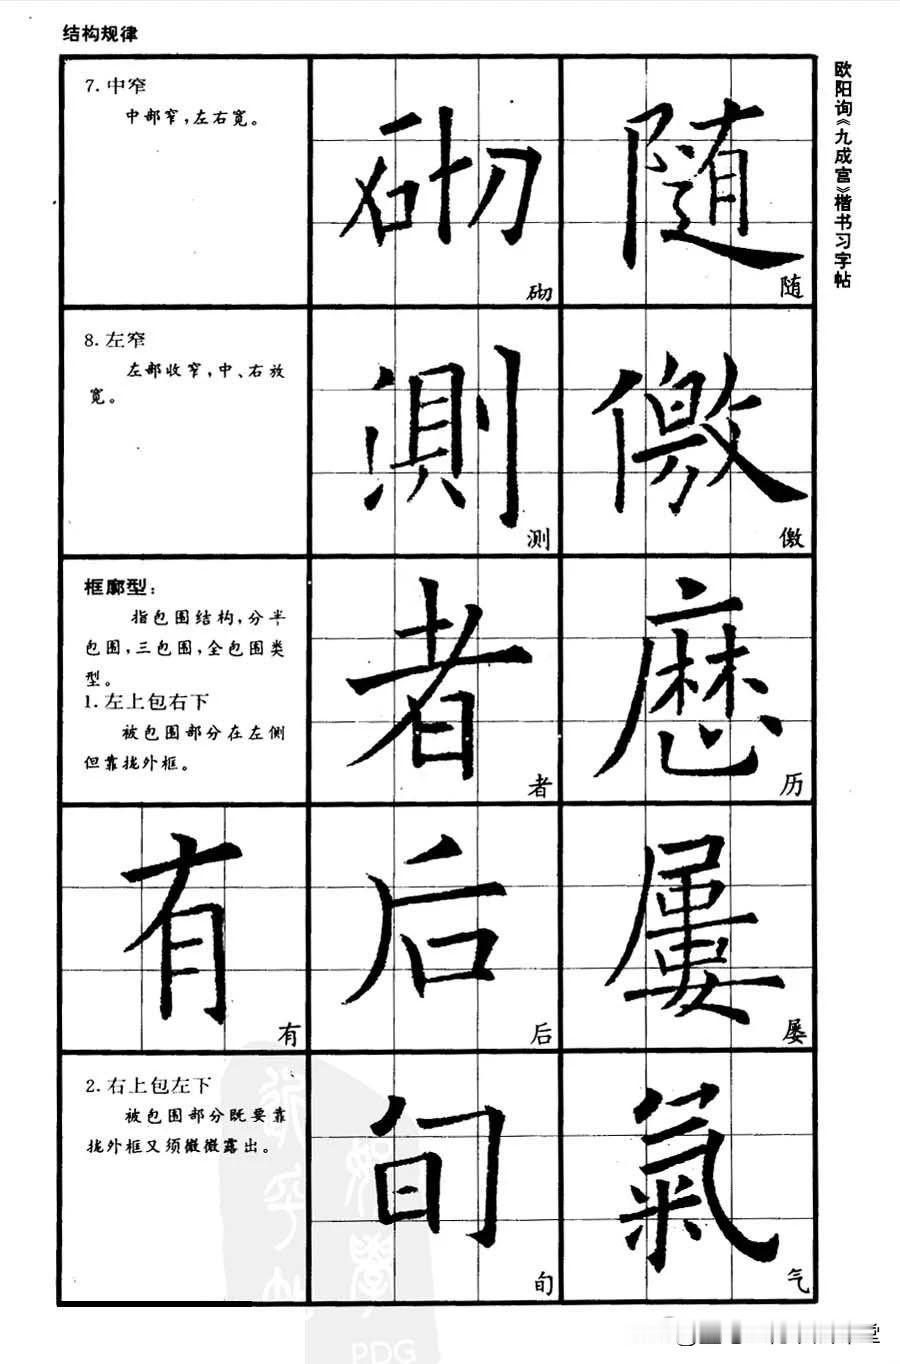 结构规律
欧阳询《九成宫》楷书习字帖
7. 中窄
中部窄，左右宽。
砌
砌
随
随
8. 左窄
左部收窄，中、右放
宽。
测
测
儌
儌
框廓型：
指包围结构，分半
包围，三包围，全包围类
型。
1. 左上包右下
被包围部分在左侧
但靠拢外框。
者
者
历
有
有
后
后
屡
屡
2. 右上包左下
被包围部分既要靠
拢外框又须微微露出。
旬
旬
氣
气
PDG